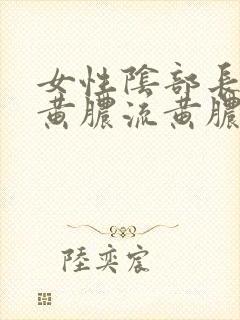 女性陰部長
黃膿流黃膿
陸奕宸